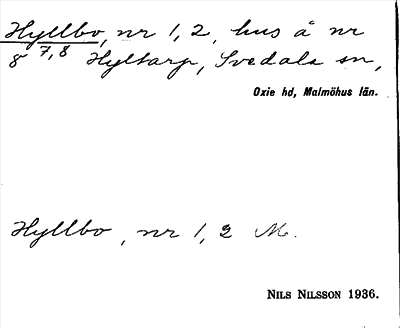 Hyllbo, nr 1, 2, hus å nr
8 7,8 Hyltarp, Svedala sn,
Oxie hd, Malmöhus län.
Hyllbo, nr 1, 2 M.
NILS NILSSON 1936.